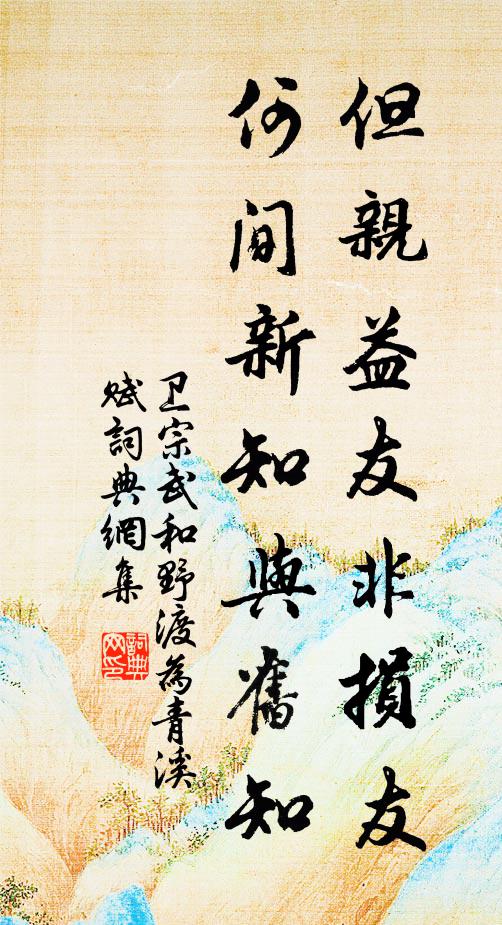 但親益友非損友
何間新知與舊知
卫宗武和野渡為青溪
賦詞典網集
詞典